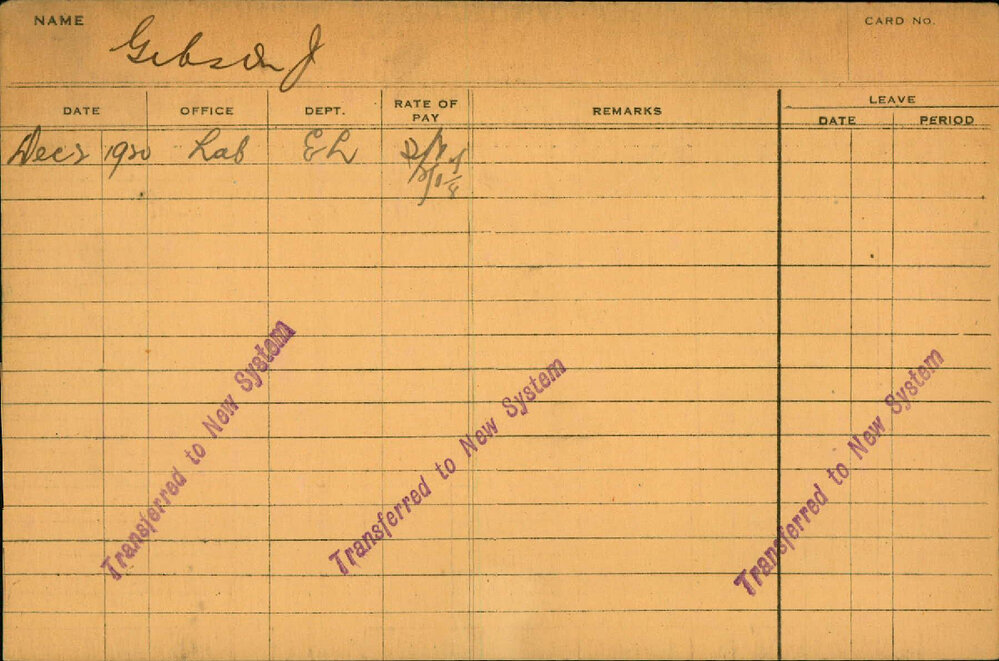 NAME Gibson J CARD No.
DATE OFFICE DEPT. RATE OF PAY REMARKS LEAVE
DATE PERIOD
Dec 2 1920 Lab EL
Transferred to New System
Transferred to New System
Transferred to New System